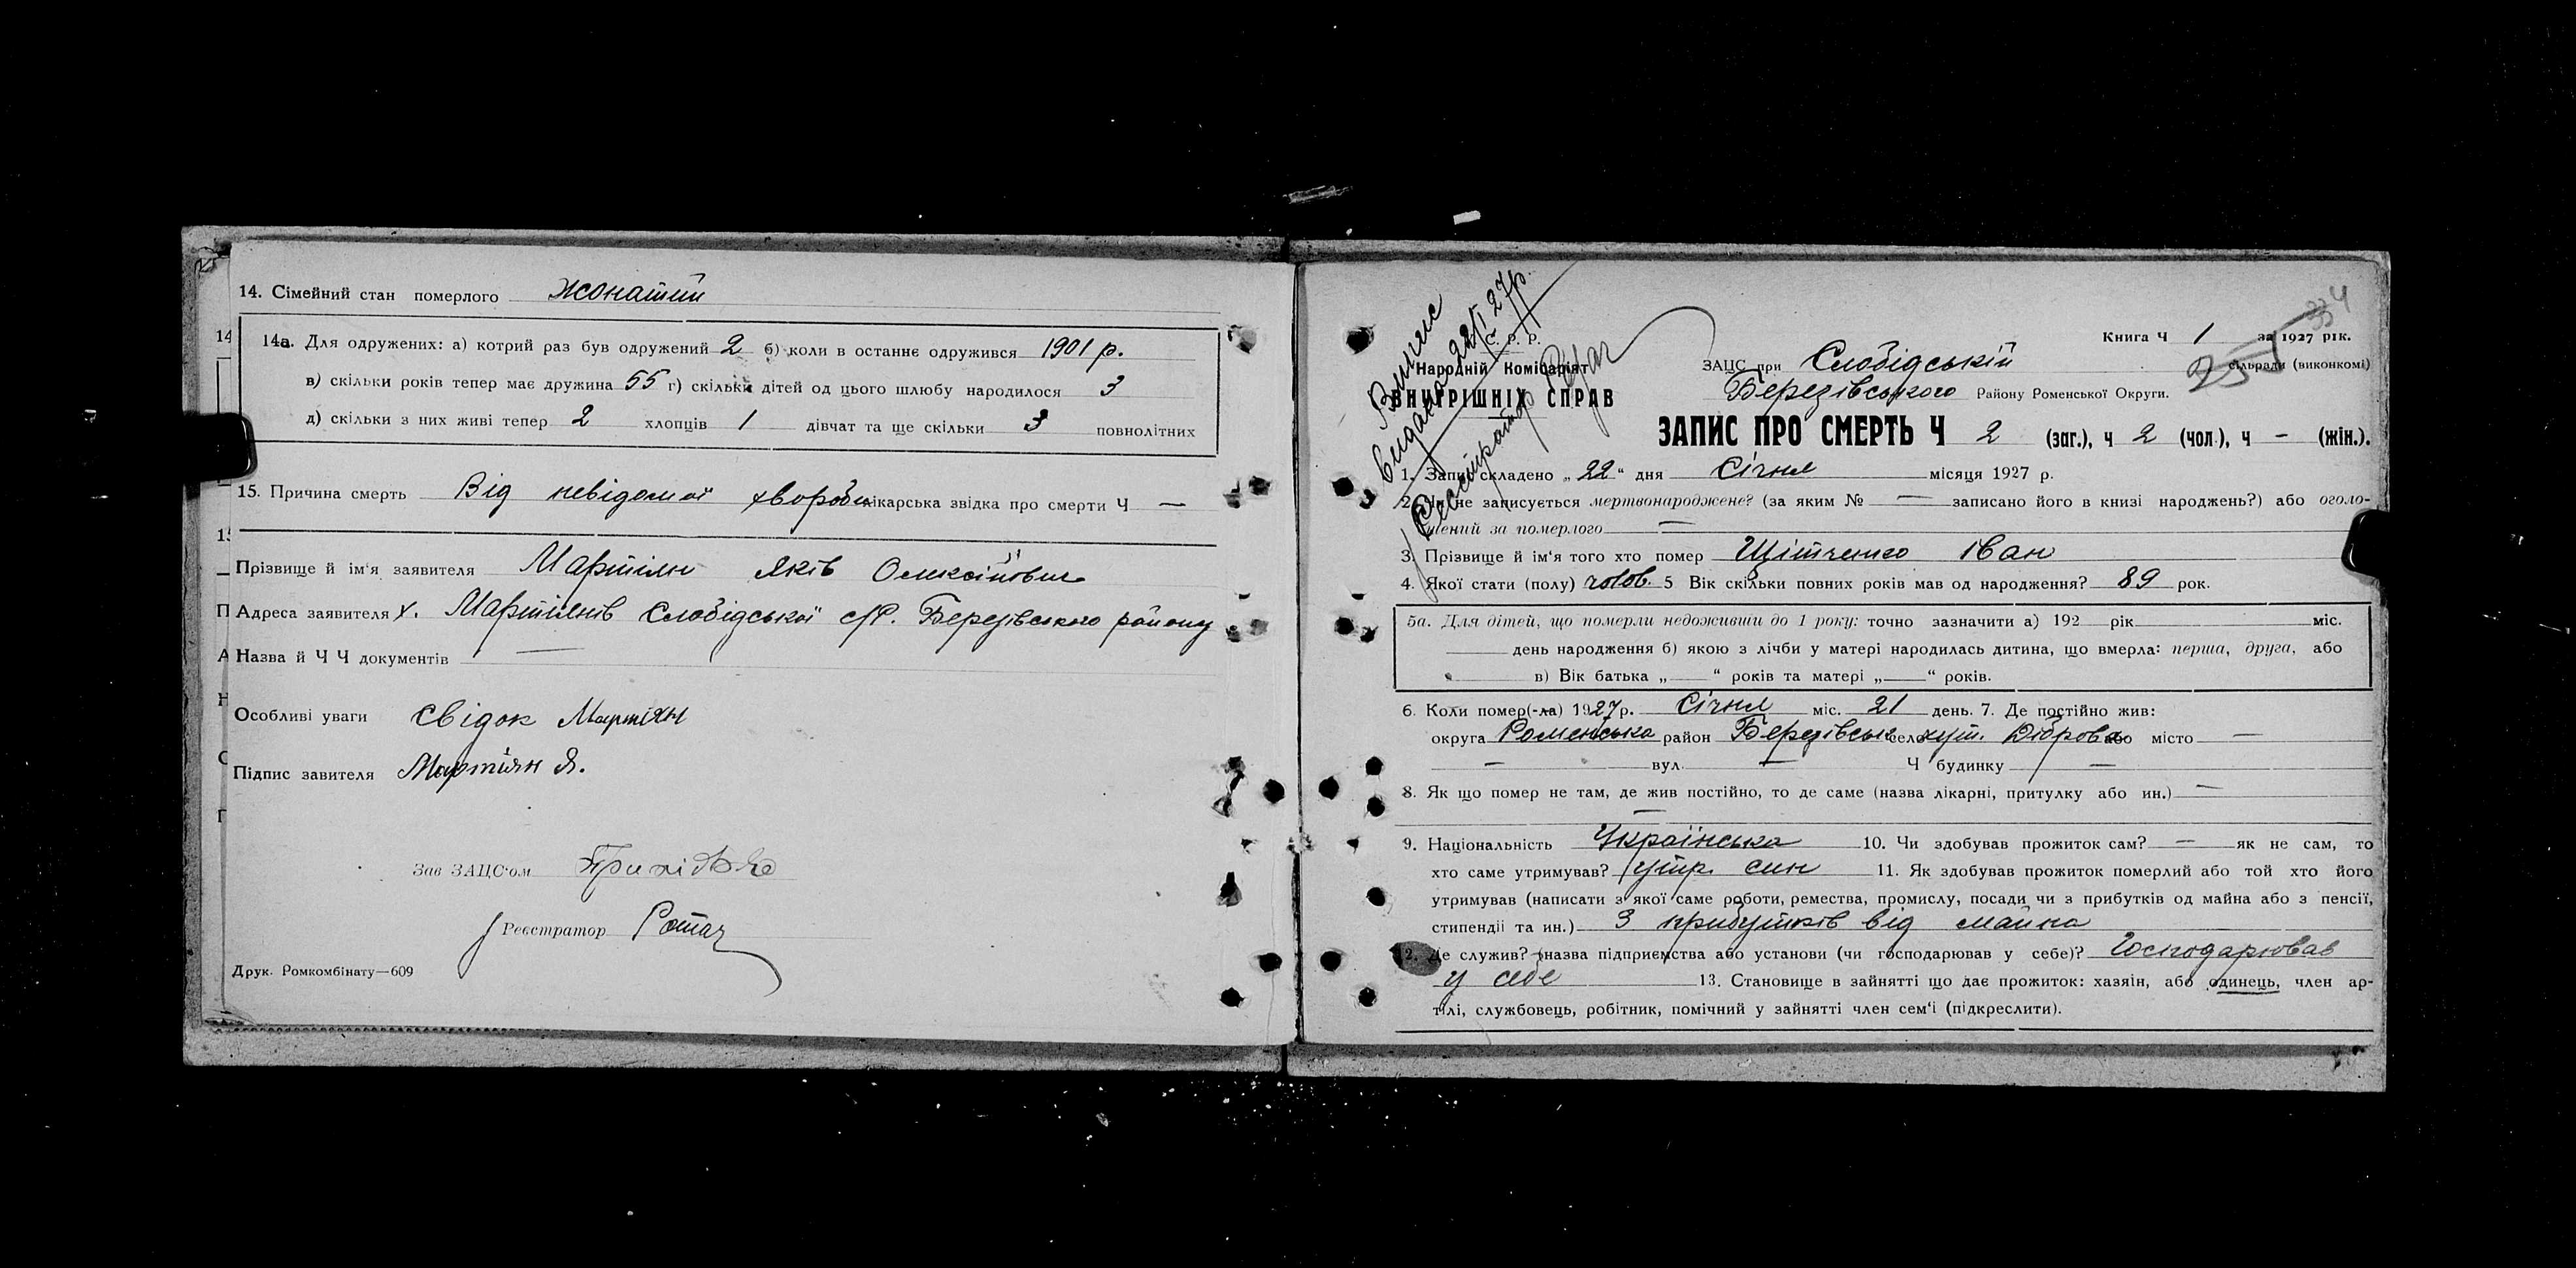 14. Сімейний стан померлого жонатий
14а. Для одружених: а) котрий раз був одружений 2 б) коли в останнє одружився 1901 р.
в) скільки років тепер має дружина 55 г) скільки дітей од цього шлюбу народилося 3
д) скільки з них живі тепер 2 хлопців 1 дівчат та ще скільки 3 повнолітних
15. Причина смерть Від невідомої хвороби лікарська звідка про смерти Ч —
Прізвище й ім'я заявителя Мартіян Яків Олексійович
Адреса заявителя х. Мартіянів Слобідської с/р. Березівського району
Назва й Ч Ч документів —
Особливі уваги Свідок Мартіян
Підпис завителя Мартіян Я.
Зав ЗАЦС'ом
Реєстратор Ротач
Друк. Ромкомбінату—609
14
14
15
П
А
Н
С
П
334
Випис
видано 22/I 27р.
Реєстратор Ротач
С. Р. Р.
Народній Комісаріят
ВНУТРІШНІХ СПРАВ
Книга Ч 1 за 1927 рік.
25
ЗАЦС при Слобідській сільради (виконкомі)
Березівського Району Роменської Округи.
ЗАПИС ПРО СМЕРТЬ Ч 2 (заг.), ч 2 (чол.), ч - (жін.).
1. Запис складено „22" дня Січня місяця 1927 р.
2. Чи не записується мертвонароджене? (за яким № — записано його в книзі народжень?) або оголо-
шений за померлого —
3. Прізвище й ім'я того хто помер Щітченко Іван
4. Якої стати (полу) чолов. 5 Вік скільки повних років мав од народження? 89 рок.
5а. Для дітей, що померли недоживши до 1 року: точно зазначити а) 192 рік міс.
день народження б) якою з лічби у матері народилась дитина, що вмерла: перша, друга, або
в) Вік батька „—" років та матері „—" років.
6. Коли помер(-ла) 1927р. Січня міс. 21 день. 7. Де постійно жив:
округа Роменська район Березівськ село хут. Діброва або місто —
— вул. — Ч будинку —
8. Як що помер не там, де жив постійно, то де саме (назва лікарні, притулку або ин.) —
—
9. Національність Українська 10. Чи здобував прожиток сам? — як не сам, то
хто саме утримував? утр. син 11. Як здобував прожиток померлий або той хто його
утримував (написати з якої саме роботи, ремества, промислу, посади чи з прибутків од майна або з пенсії,
стипендії та ин.) З прибутків від майна
12. Де служив? (назва підприємства або установи (чи господарював у себе)? Господарював
у себе 13. Становище в зайнятті що дає прожиток: хазяін, або одинець, член ар-
тілі, службовець, робітник, помічний у зайнятті член сем'і (підкреслити).